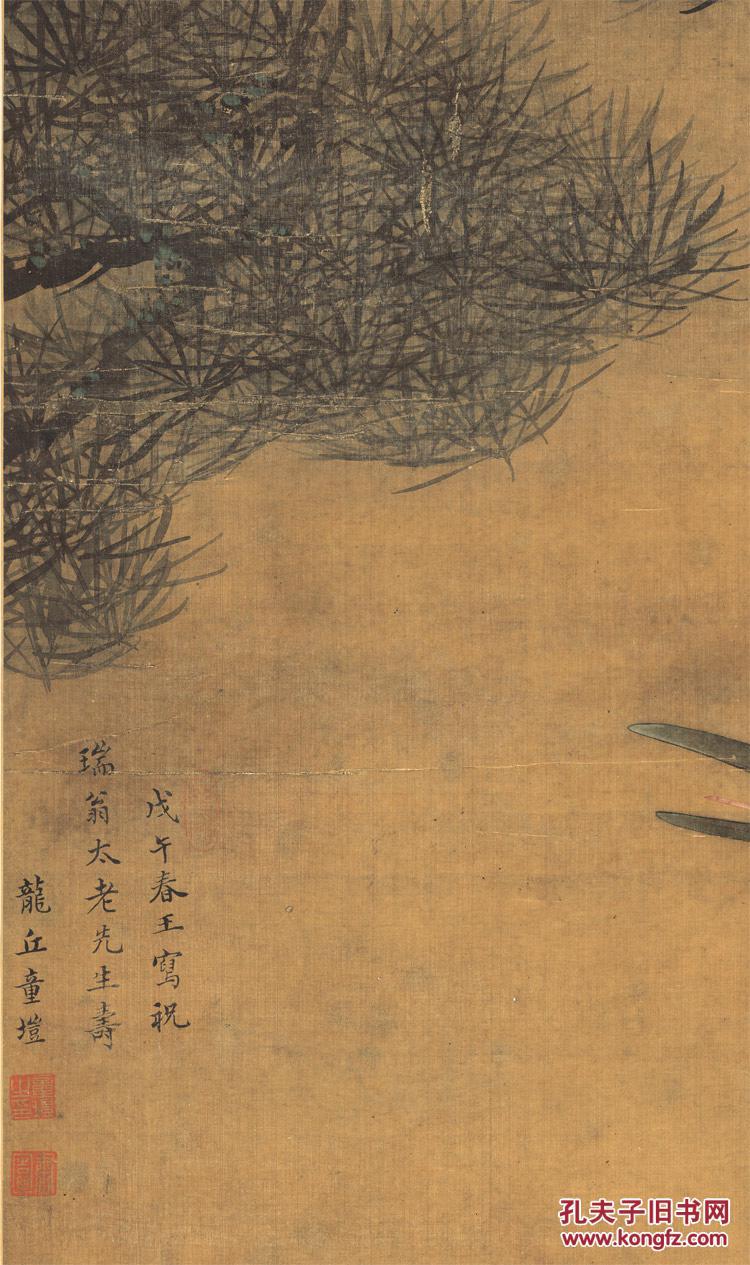 戊午春王寫祝
瑞翁太老先生壽
龍丘童塏
孔夫子旧书网
www.kongfz.com